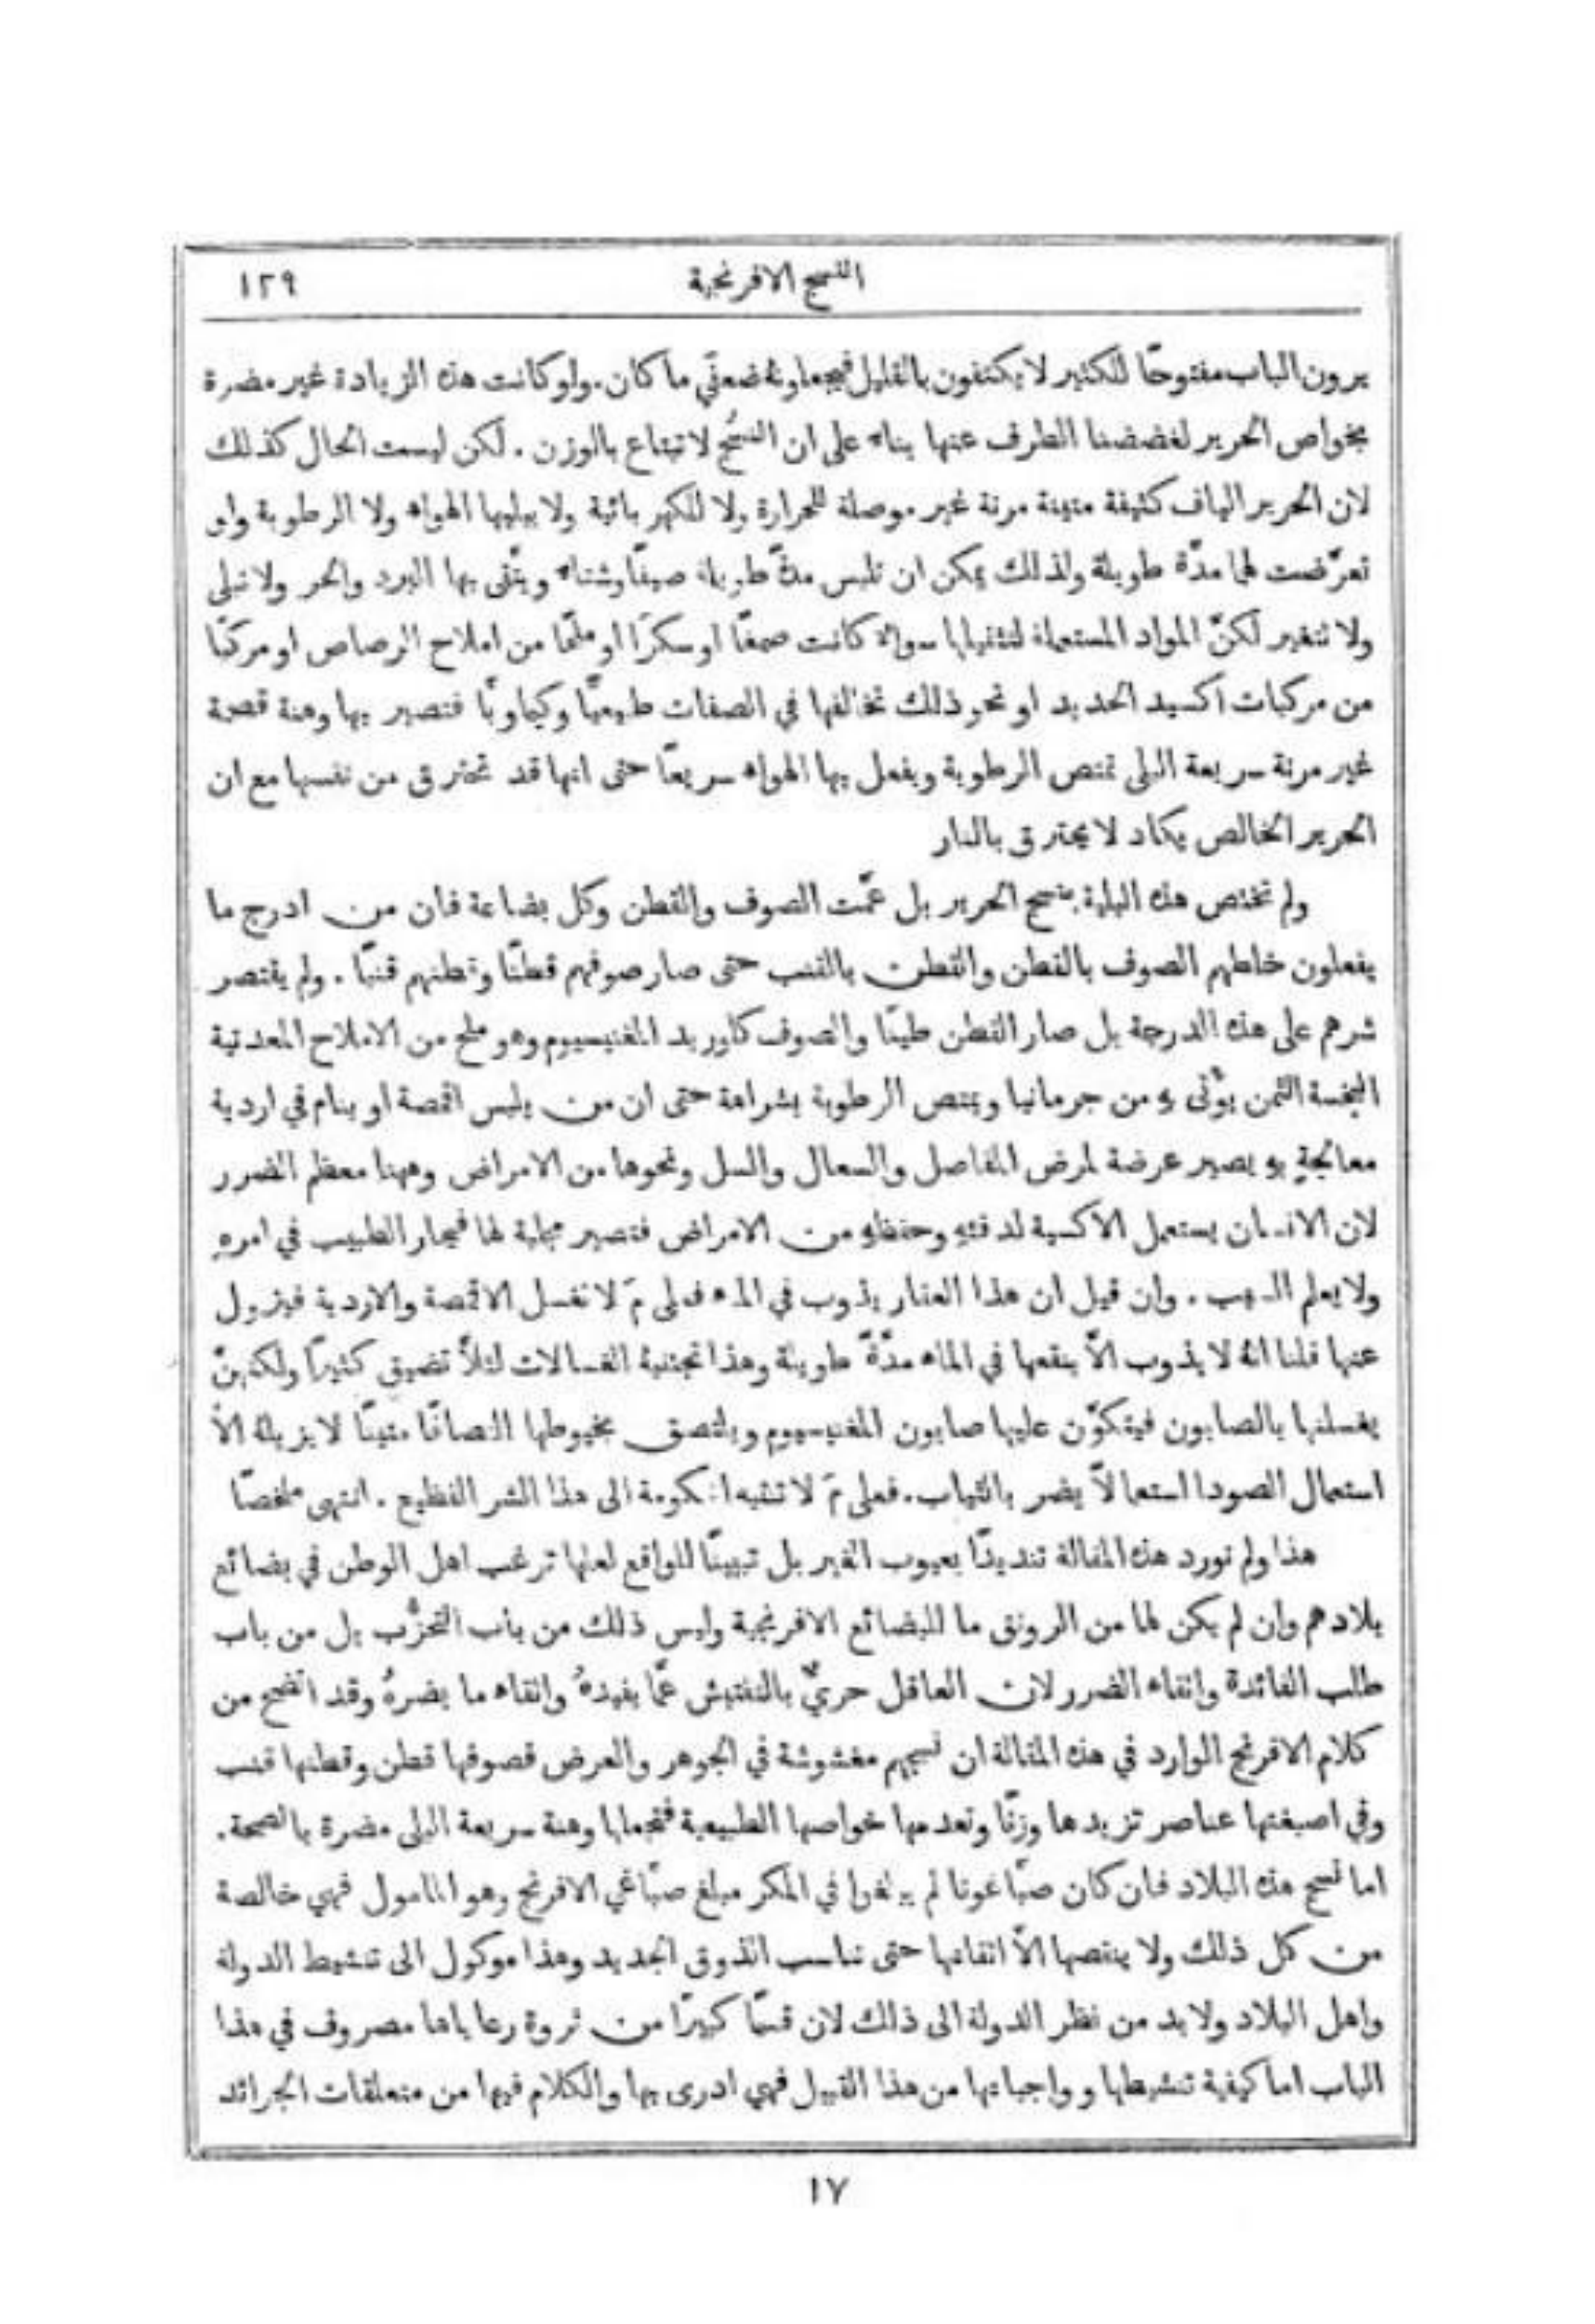 النسج الافرنجية
١٢٩
يرون الباب مفتوحًا للكثير لا يكتفون بالقليل فيجعلونهُ ضعفَي ما كان. ولو كانت هذه الزيادة غير مضرة
بخواص الحرير لغضضنا الطرف عنها بناء على ان النسُج لا تبتاع بالوزن. لكن ليست الحال كذلك
لان الحرير الياف كثيفة متينة مرنة غير موصلة للحرارة ولا للكهربائية ولا يبليها الهواء ولا الرطوبة ولو
تعرّضت لهما مدّة طويلة ولذلك يمكن ان تلبس مدّة طويلة صيفًا وشتاء ويتَّقى بها البرد والحر ولا تبلى
ولا تتغير لكنّ المواد المستعملة لتثقيلها سواء كانت صمغًا او سكرًا او ملحًا من املاح الرصاص او مركبًا
من مركبات اكسيد الحديد او نحو ذلك تخالفها في الصفات طبيعيًّا وكيماويًّا فتصير بها وهنة قصمة
غير مرنة سريعة البلى تمتص الرطوبة ويفعل بها الهواء سريعًا حتى انها قد تحترق من نفسها مع ان
الحرير الخالص يكاد لا يحترق بالنار
ولم تختص هذه البلية بنسج الحرير بل عمَّت الصوف والقطن وكل بضاعة فان من ادرج ما
يفعلون خلطهم الصوف بالقطن والقطن بالقنب حتى صار صوفهم قطنًا وقطنهم قنبًا. ولم يقتصر
شرهم على هذه الدرجة بل صار القطن طينًا والصوف كلوريد المغنيسيوم وهو ملح من الاملاح المعدنية
البخسة الثمن يؤْتى بهِ من جرمانيا ويمتص الرطوبة بشراهة حتى ان من يلبس اقمصة او ينام في اردية
معالجةٍ بهِ يصير عرضة لمرض المفاصل والسعال والسل ونحوها من الامراض وههنا معظم الضرر
لان الانسان يستعمل الاكسية لدفئهِ وحفظهِ من الامراض فتصير مجلبة لها فيحار الطبيب في امرهِ
ولا يعلم السبب. وان قيل ان هذا العقار يذوب في الماء فعلى مَ لا تغسل الاقمصة والاردية فيزول
عنها قلنا انهُ لا يذوب الَّا بنقعها في الماء مدَّةً طويلة وهذا تجتنبهُ الغسالات لئلَّا تضيق كثيرًا ولكنهنَّ
يغسلنها بالصابون فيتكوَّن عليها صابون المغنيسيوم ويلتصق بخيوطها التصاقًا متينًا لا يزيلهُ الَّا
استعمال الصودا استعمالًا يضر بالثياب. فعلى مَ لا تنتبه الحكومة الى هذا الشر الفظيع. انتهى ملخصًا
هذا ولم نورد هذه المقالة تنديدًا بعيوب الغير بل تبيينًا للواقع لعلها ترغب اهل الوطن في بضائع
بلادهم وان لم يكن لها من الرونق ما للبضائع الافرنجية وليس ذلك من باب التحزُّب بل من باب
طلب الفائدة واتقاء الضرر لان العاقل حريٌّ بالتفتيش عمَّا يفيدهُ واتقاء ما يضرهُ وقد اتضح من
كلام الافرنج الوارد في هذه المقالة ان نسجهم مغشوشة في الجوهر والعرض فصوفها قطن وقطنها قنب
وفي اصبغتها عناصر تزيدها وزنًا وتعدمها خواصها الطبيعية فتجعلها وهنة سريعة البلى مضرة بالصحة.
اما نسج هذه البلاد فان كان صبَّاغونا لم يبلغوا في المكر مبلغ صبَّاغي الافرنج وهو المامول فهي خالصة
من كل ذلك ولا ينقصها الَّا اتقانها حتى تناسب الذوق الجديد وهذا موكول الى تنشيط الدولة
واهل البلاد ولا بد من نظر الدولة الى ذلك لان قسمًا كبيرًا من ثروة رعاياها مصروف في هذا
الباب اما كيفية تنشيطها وواجباتها من هذا القبيل فهي ادرى بها والكلام فيها من متعلقات الجرائد
١٧